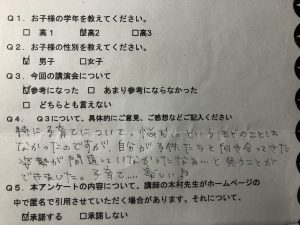 Q1. お子様の学年を教えてください。
□ 高1 ☑高2 □高3
Q2. お子様の性別を教えてください。
☑ 男子 □女子
Q3. 今回の講演会について
☑参考になった □ あまり参考にならなかった
□ どちらとも言えない
Q4. Q3について、具体的にご意見、ご感想などご記入ください
特に子育てについて、悩みがあるというほどのことは
なかったのですが、自分が子供たちと向き合ってきた
姿勢が間違っていなかったなぁ…と思うことが
できました。子育て… 楽しい
Q5. 本アンケートの内容について、講師の木村先生がホームページの
中で匿名で引用させていただく場合があります。それについて、
☑承諾する □承諾しない